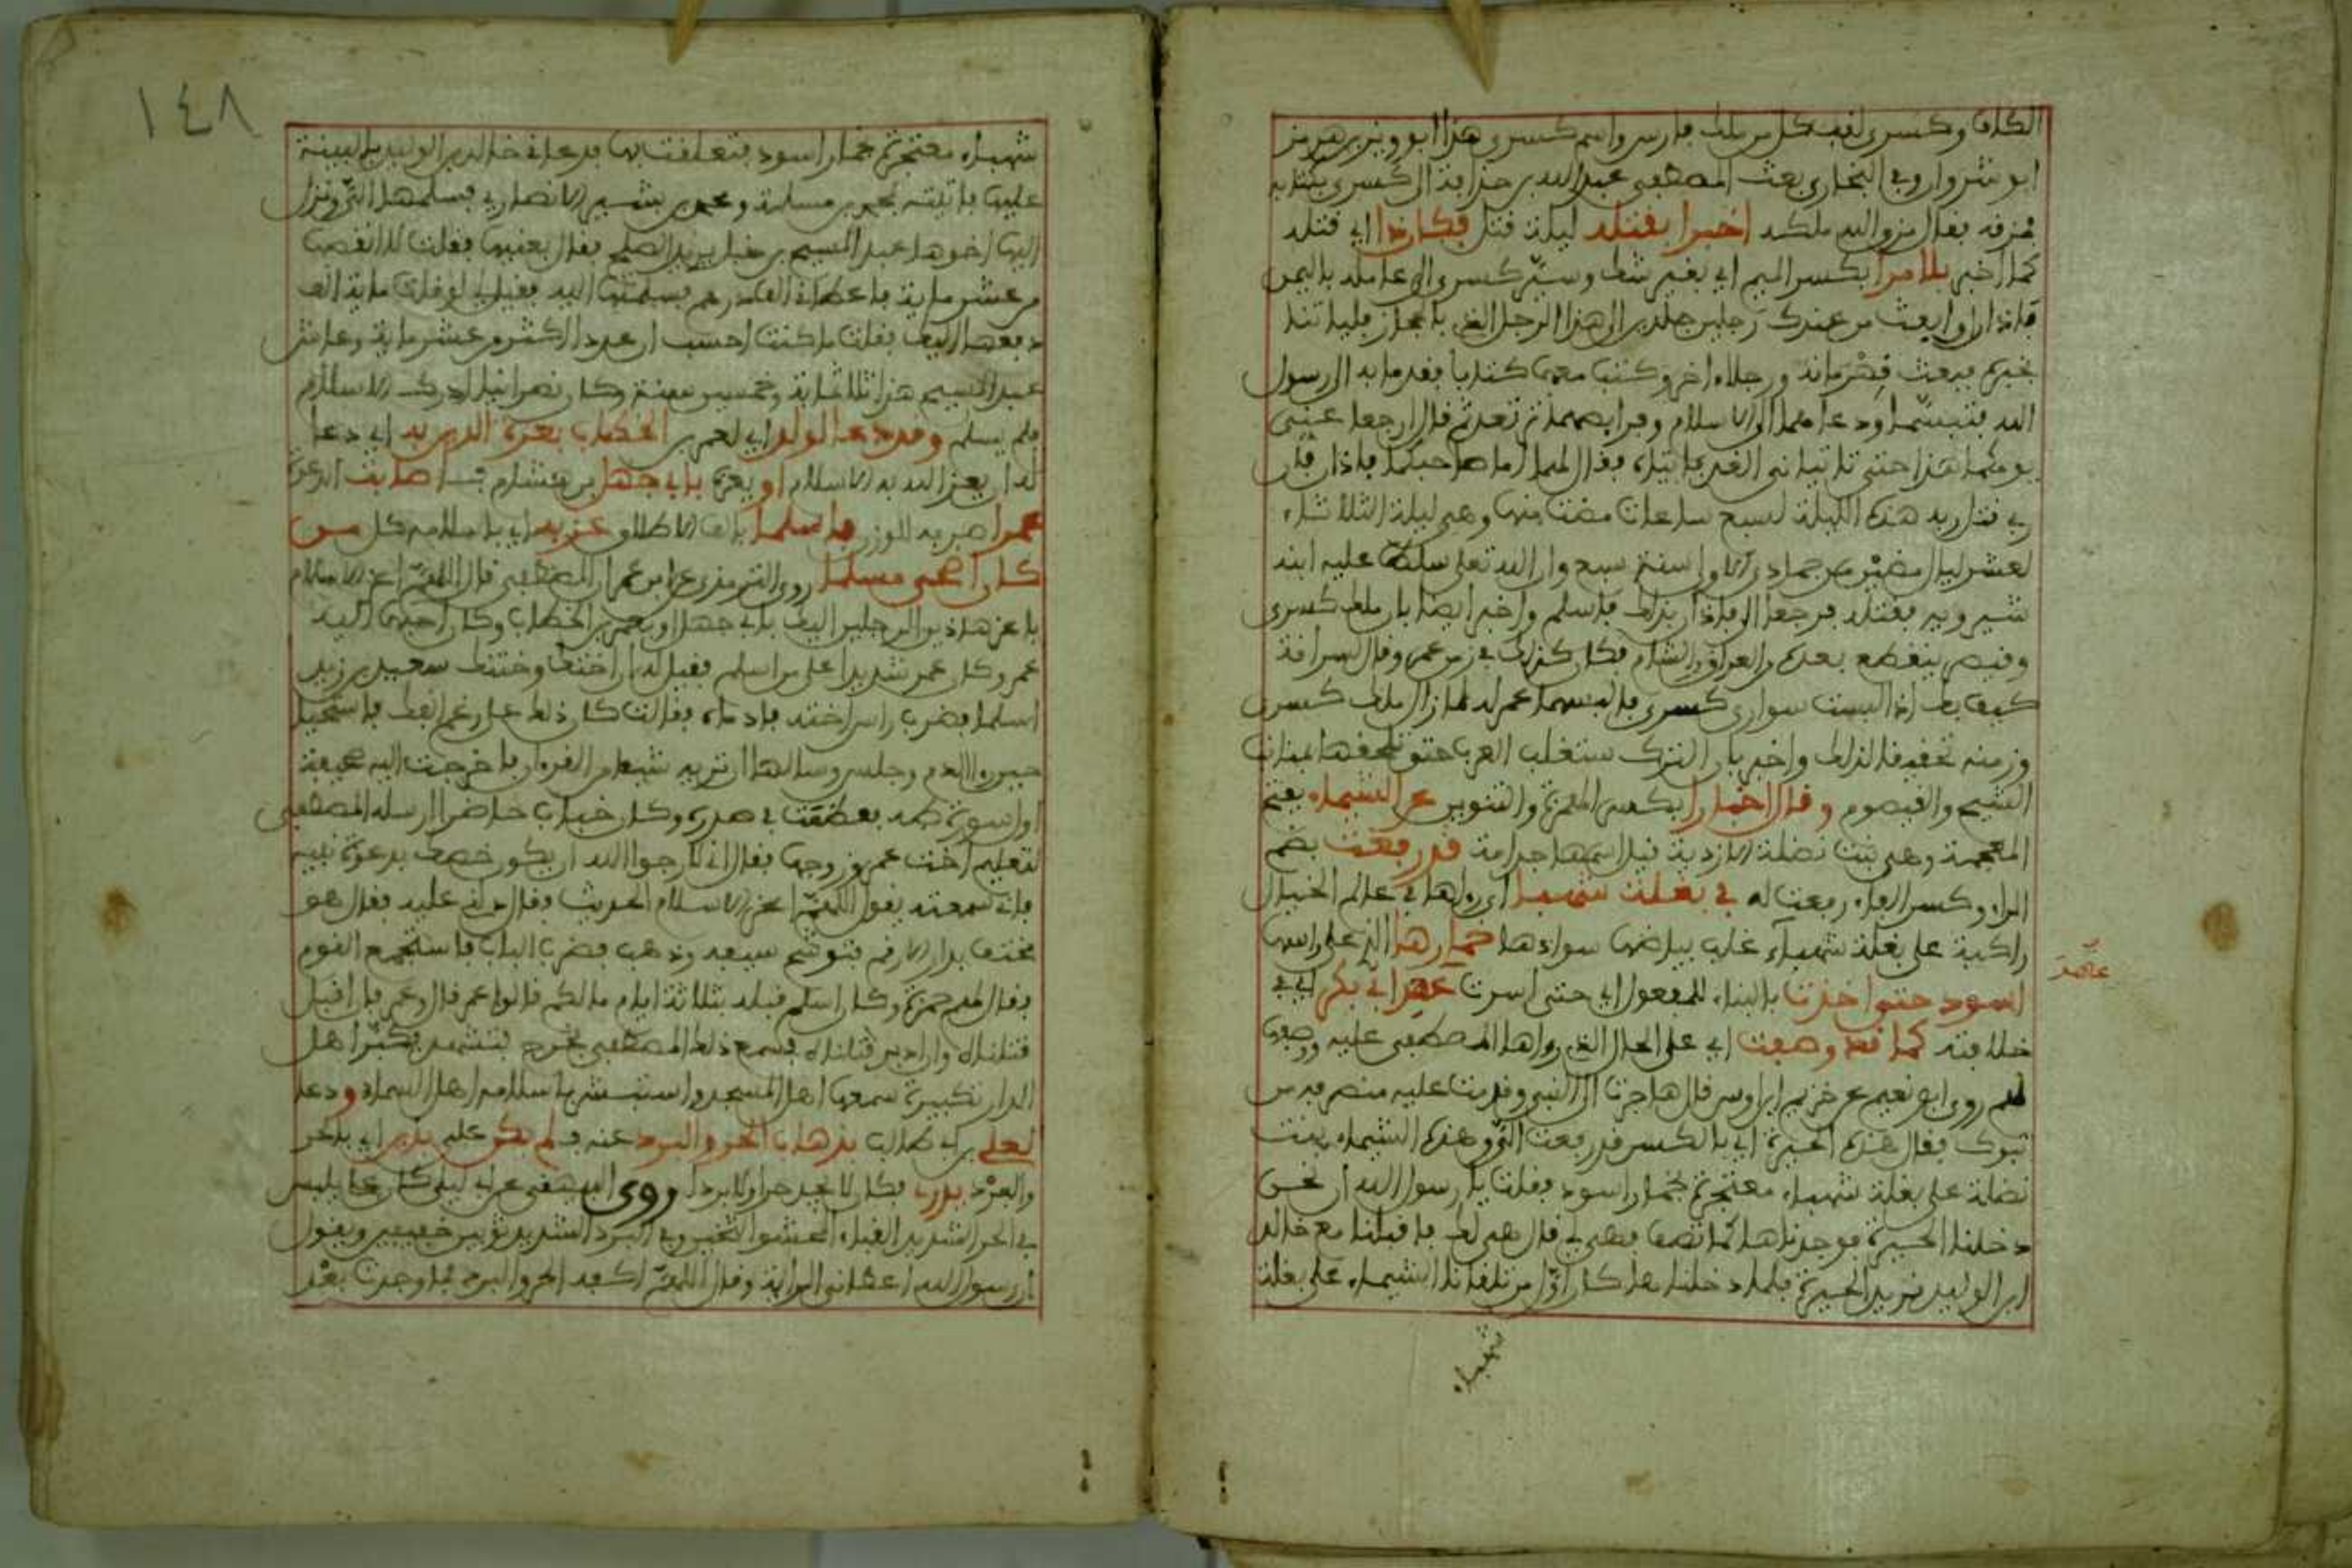 الكاف وكسرى لقب كل من ملك فارس واسم كسرى هذا ابرويز بن هرمز
انوشروان وفي البخاري بعث المصطفى عبد الله بن حذافة الى كسرى بكتابه
فمزقه فقال مزق الله ملكه اخبرا بقتله ليلة قتل فكان ذا اي قتله
كما اخبر بلا مرا بكسر الميم اي بغير شك وسير كسرى الى عامله باليمن
باذان ان ابعث من عندك رجلين جلدين الى هذا الرجل الذي بالحجاز فلياتنا
بخبره فبعث قهرمانه ورجلا اخر وكتب معهما كتابا فقدما به الى رسول
الله فتبسم ودعاهما الى الاسلام وفرايصهما ترتعد ثم قال ارجعا عني
يومكما هذا حتى تاتياني الغد فاتياه فقال لهما ابلغا صاحبكما باذان ان
ربي قتل ربه هذه الليلة لسبع ساعات مضت منها وهي ليلة الثلاثاء
لعشر ليال مضين من جمادى الاولى سنة سبع وان الله تعلى سلط عليه ابنه
شيرويه فقتله فرجعا الى باذان بذلك فاسلم واخبر ايضا بان ملك كسرى
وقيصر ينقطع بعده بالعراق والشام فكان كذلك في زمن عمر وقال لسراقة
كيف بك اذا البست سواري كسرى فالبسهما عمر له لما زال ملك كسرى
وزمنه تحقيقا لذلك واخبر بان الترك ستغلب العرب حتى تلحقها بمنابت
الشيح والقيصوم وقال اخبارا بكسر الهمزة والتنوين عن الشيماء بفتح
المعجمة وهي بنت نضلة الازدية قيل اسمها جدامة قد رفعت بضم
الراء وكسر الفاء رفعت له في بغلة شهبا اي رواها في عالم الخيال
راكبة على بغلة شهباء غلب بياضها سوادها خمارها الذي على راسها
اسود حتى اخذت بالبناء للمفعول اي حتى اسرت عهد ابي بكر اي في
عهد
خلافته كما قد وصفت اي على الحال الذي رواها المصطفى عليه ووصفها
لهم روى ابو نعيم عن خريم بن اوس قال هاجرت الى النبي وقدمت عليه منصرفه من
تبوك فقال هذه الحيرة اي بالكسر قد رفعت الي وهذه الشيماء بنت
نضلة على بغلة شهباء معتجرة بخمار اسود فقلت يا رسول الله ان نحن
دخلنا الحيرة فوجدناها كما تصف فهي لي قال هي لك فاقبلنا مع خالد
ابن الوليد نريد الحيرة فلما دخلناها كان اول من تلقانا الشيماء على بغلة
شهباء
١٤٨
شهباء معتجرة بخمار اسود فتعلقت بها فدعاني خالد بن الوليد بالبينة
عليها فاتيته بمحمد بن مسلمة ومحمد بن بشير الانصاري فسلمها الي ونزل
الينا اخوها عبد المسيح بن يريد الصلح فقال بعنيها فقلت لا انقصها
من عشر ماية فاعطاني الف درهم فسلمتها اليه فقيل لي لو قلت ماية الف
دفعها اليك فقلت ما كنت احسب ان عددا اكثر من عشر ماية وعاش
عبد المسيح هذا ثلاثماية وخمسين سنة وكان نصرانيا ادرك الاسلام
فلم يسلم وقد دعا لولد اي لعمر بن الخطاب بعزة الدين به اي دعا
له ان يعز الله به الاسلام او بعزة بابي جهل بن هشام فاصابت الدعوة
عمرا صرف للوزن فاسلما بالف الاطلاق عز به اي باسلامه كل من
كان اضحى مسلما روى الترمذي عن ابن عمر ان المصطفى قال اللهم اعز الاسلام
باعز هاذين الرجلين اليك بابي جهل او بعمر بن الخطاب وكان احبهما اليه
عمر وكان عمر شديدا على من اسلم فقيل له ان اختك وختنك سعيد بن زيد
اسلما فضرب راس اخته فادماه فقالت كان ذلك على رغم انفك فاستحيا
حين راا الدم وجلس وسالها ان تريه شيئا من القران فاخرجت اليه صحيفة
اول سورة طه فعظمت في صدره وكان خباب حاضرا ارسله المصطفى
لتعليم اخت عمر وزوجها فقال اني لارجوا الله ان يكون خصك بدعوة نبيه
فاني سمعته يقول اللهم اعز الاسلام الحديث فقال دلني عليه فقال هو
مختف بدار الارقم فتوشح سيفه وذهب فضرب الباب فاستجمع القوم
فقال لهم حمزة وكان اسلم قبله بثلاثة ايام مالكم قالوا عمر قال وعمر فان اقبل
قبلناه وان ادبر قتلناه فسمع ذلك المصطفى فخرج فتشهد فكبر اهل
الدار تكبيرة سمعها اهل المسجد واستبشر باسلامه اهل السماء ودعا
لعلي بن ابي طالب بذهاب الحر والبرد عنه فلم يكن عليه يدري اي بالحر
والبرد يدر فكان لا يجد حرا ولا بردا روى البيهقي عن ابن ابي ليلى كان علي يلبس
في الحر الشديد القباء المحشوا الثخين وفي البرد الشديد ثوبين خفيفين ويقول
ان رسول الله اعطاني الراية وقال اللهم اكفه الحر والبرد فما وجدت بعد